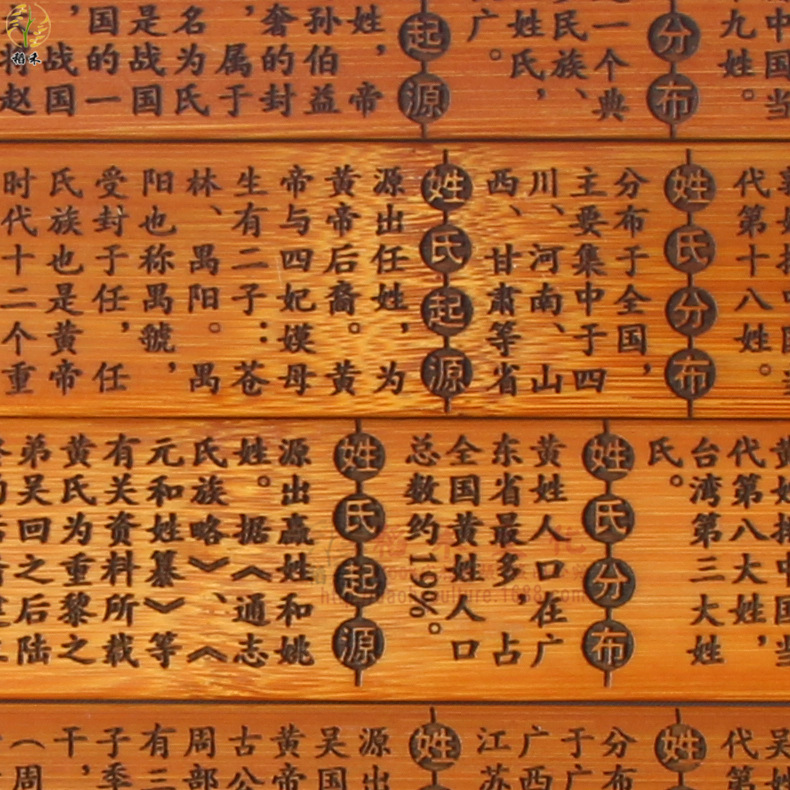 中国当
九姓。
分布
一个典
民族、
姓氏，
广。
起源
姓，帝
孙伯益
奢的封
，属于
名为氏
是战国
国的一
战国
将赵
代第十八姓。
姓氏分布
分布于全国，
主要集中于四
川、河南、山
西、甘肃等省
姓氏起源
源出任姓，为
黄帝后裔。黄
帝与四妃嫫母
生有二子：苍
林、禺阳。禺
阳也称禺虢，
受封于任，任
氏族也是黄帝
时代十二个重
黄姓排中国当
代第八大姓，
台湾第三大姓
氏。
姓氏分布
黄姓人口在广
东省最多，占
全国黄姓人口
总数约19%。
姓氏起源
源出嬴姓和姚
姓。据《通志
氏族略》、《
元和姓纂》等
有关资料所载
黄氏为重黎之
弟吴回之后陆
吴姓
代第
姓
分布
于广
广西
江苏
姓
源出
吴国
黄帝
古公
周部
有三
子季
干，
（周